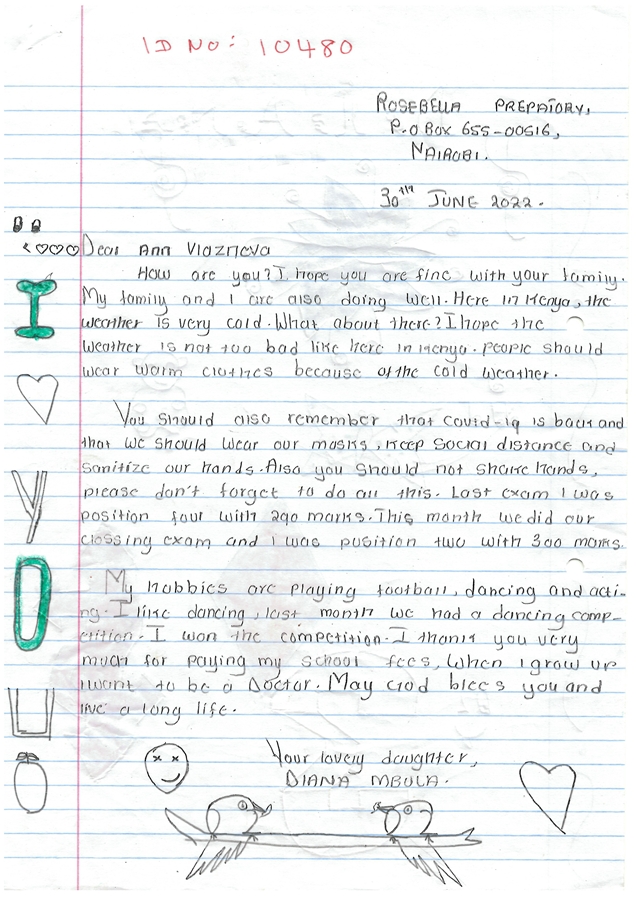 ID NO: 10480
ROSEBELLA PREPATORY,
P.O BOX 655-00516,
NAIROBI.
30th JUNE 2022.
Dear Ann Vlazneva
How are you? I hope you are fine with your family.
My family and I are also doing well. Here in Kenya, the
weather is very cold. What about there? I hope the
weather is not too bad like here in Kenya. People should
wear warm clothes because of the cold weather.
You should also remember that covid-19 is back and
that we should wear our masks, keep social distance and
sanitize our hands. Also you should not share hands,
please don't forget to do all this. Last exam I was
position four with 290 marks. This month we did our
clossing exam and I was position two with 300 marks.
My hobbies are playing football, dancing and acti-
ng. I like dancing, last month we had a dancing comp-
etition. I won the competition. I thank you very
much for paying my school fees, When I grow up
I want to be a Doctor. May God blees you and
live a long life.
Your lovely daughter,
DIANA MBULA.
I
Y
O
U